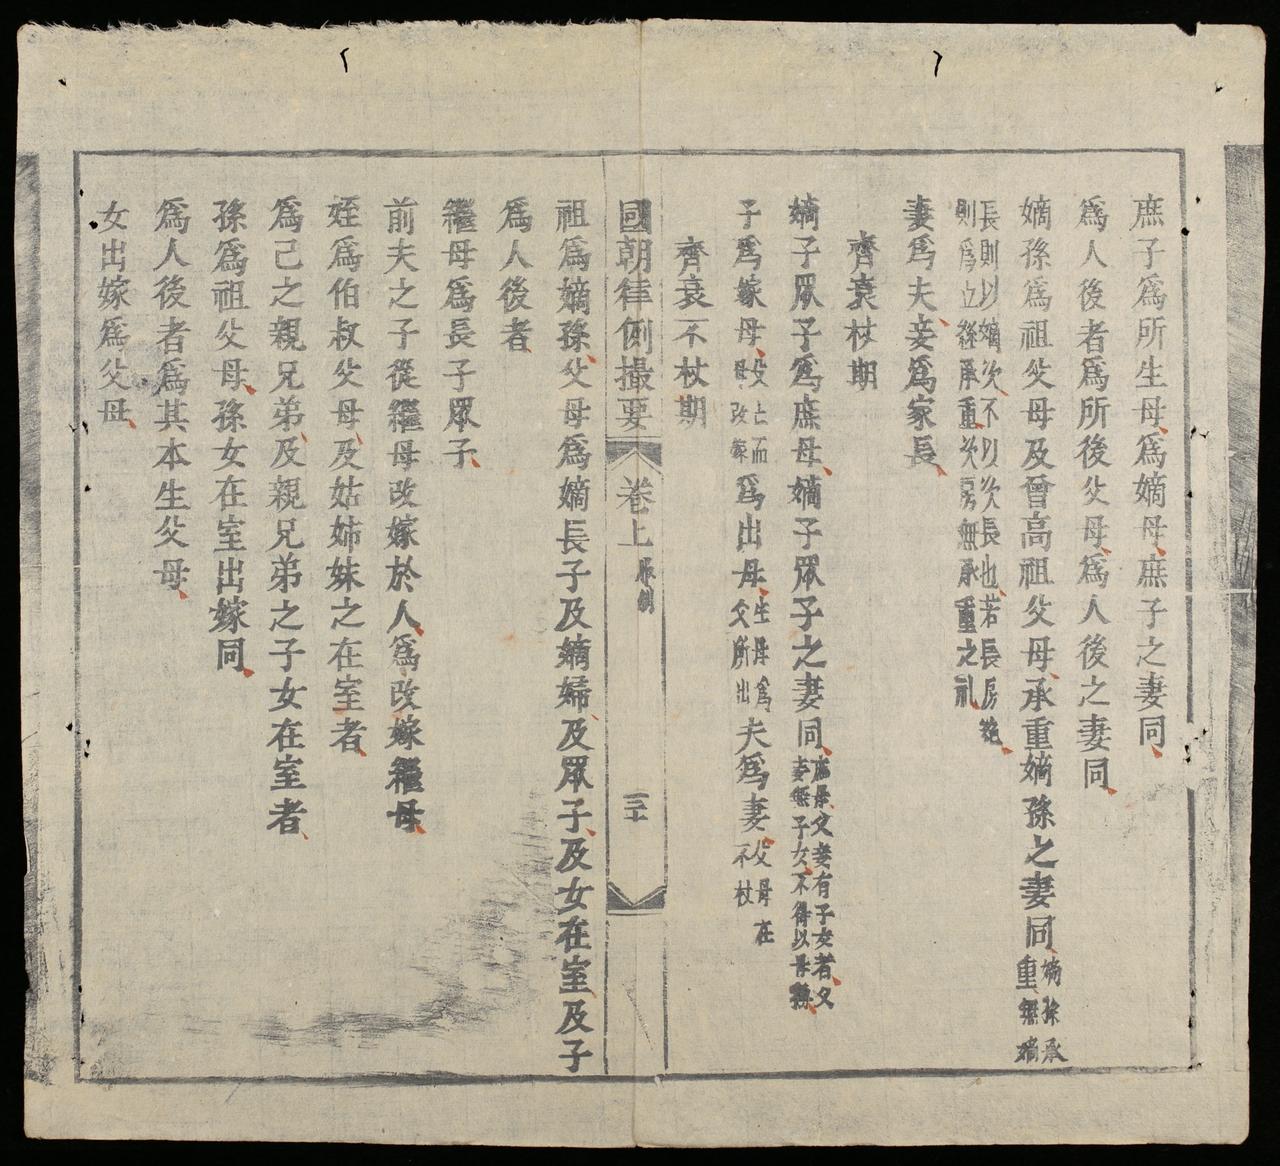 庶子爲所生母爲嫡母庶子之妻同
爲人後者爲所後父母爲人後之妻同
嫡孫爲祖父母及曾高祖父母承重嫡孫之妻同嫡孫承重無嫡
長則以嫡次不以次長也若長房絶則爲立繼承重次房無承重之礼
妻爲夫妾爲家長
齊衰杖期
嫡子眾子爲庶母嫡子眾子之妻同庶母父妾有子女者父妾無子女不得以母稱
子爲嫁母母改嫁父亡而爲出母生母爲父所出夫爲妻父母在不杖
齊衰不杖期
國朝律例撮要 卷上 服制 三十
祖爲嫡孫父母爲嫡長子及嫡婦及眾子及女在室及子
爲人後者
繼母爲長子眾子
前夫之子從繼母改嫁於人爲改嫁繼母
姪爲伯叔父母及姑姊妹之在室者
爲己之親兄弟及親兄弟之子女在室者
孫爲祖父母孫女在室出嫁同
爲人後者爲其本生父母
女出嫁爲父母